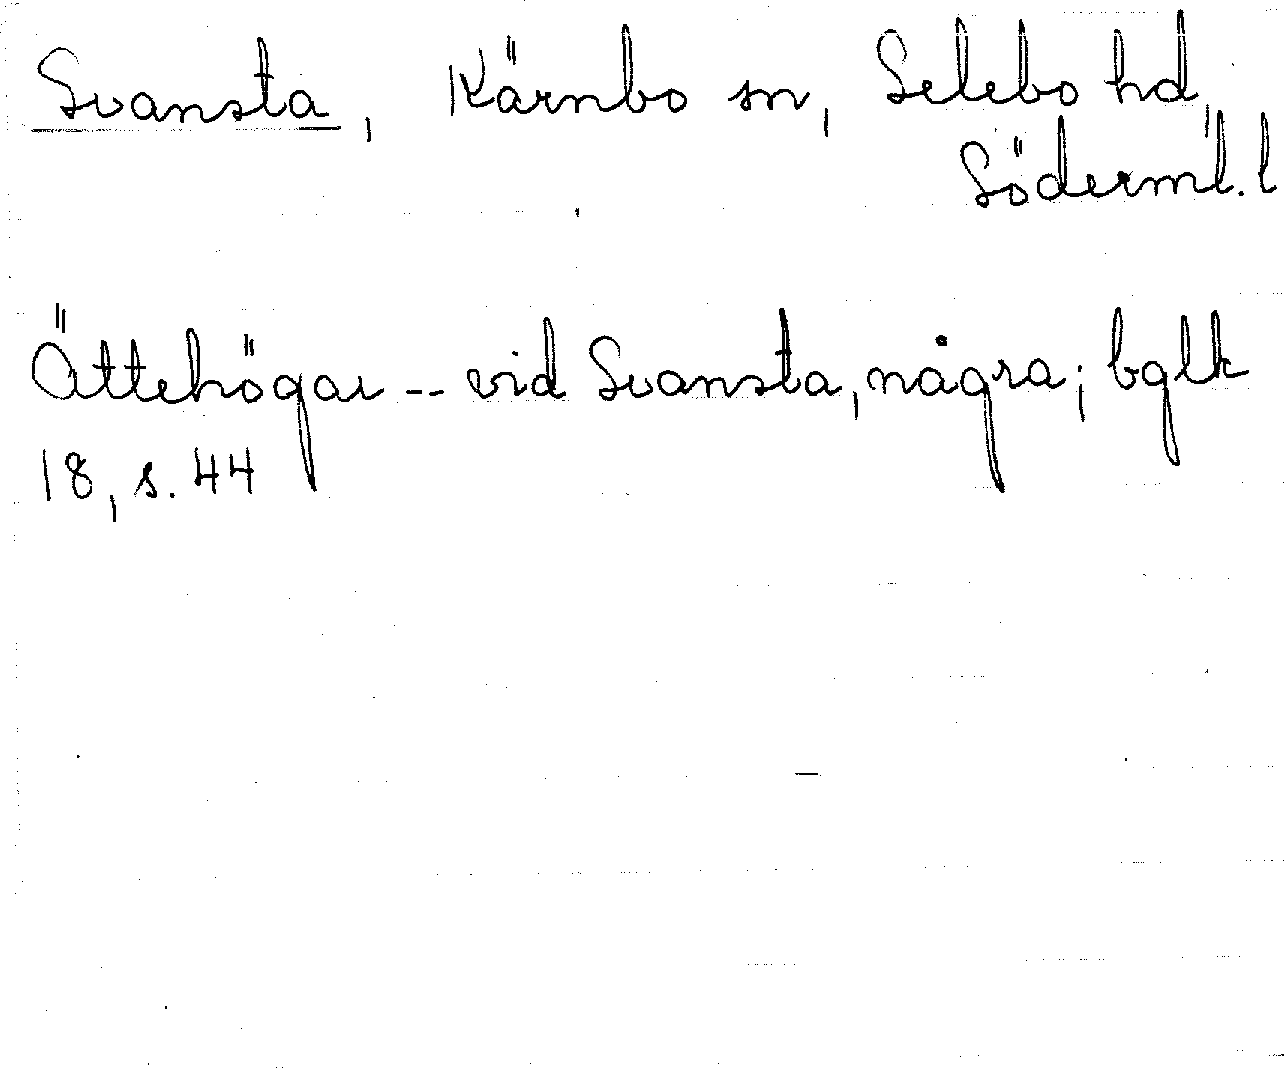 Svansta, Kärnbo sn, Selebo hd,
Söderml. l
Ättehögar -- vid Svansta, några; bglk
18, s. 44